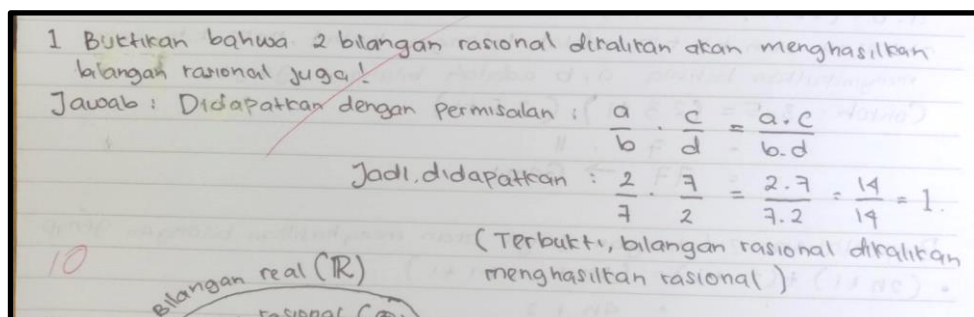 1 Buktikan bahwa 2 bilangan rasional dikalikan akan menghasilkan
bilangan rasional juga!
Jawab : Didapatkan dengan permisalan : a/b . c/d = a.c/b.d
Jadi, didapatkan : 2/7 . 7/2 = 2.7/7.2 = 14/14 = 1.
(Terbukti, bilangan rasional dikalikan
menghasilkan rasional)
10
Bilangan real (ℝ)
rasional